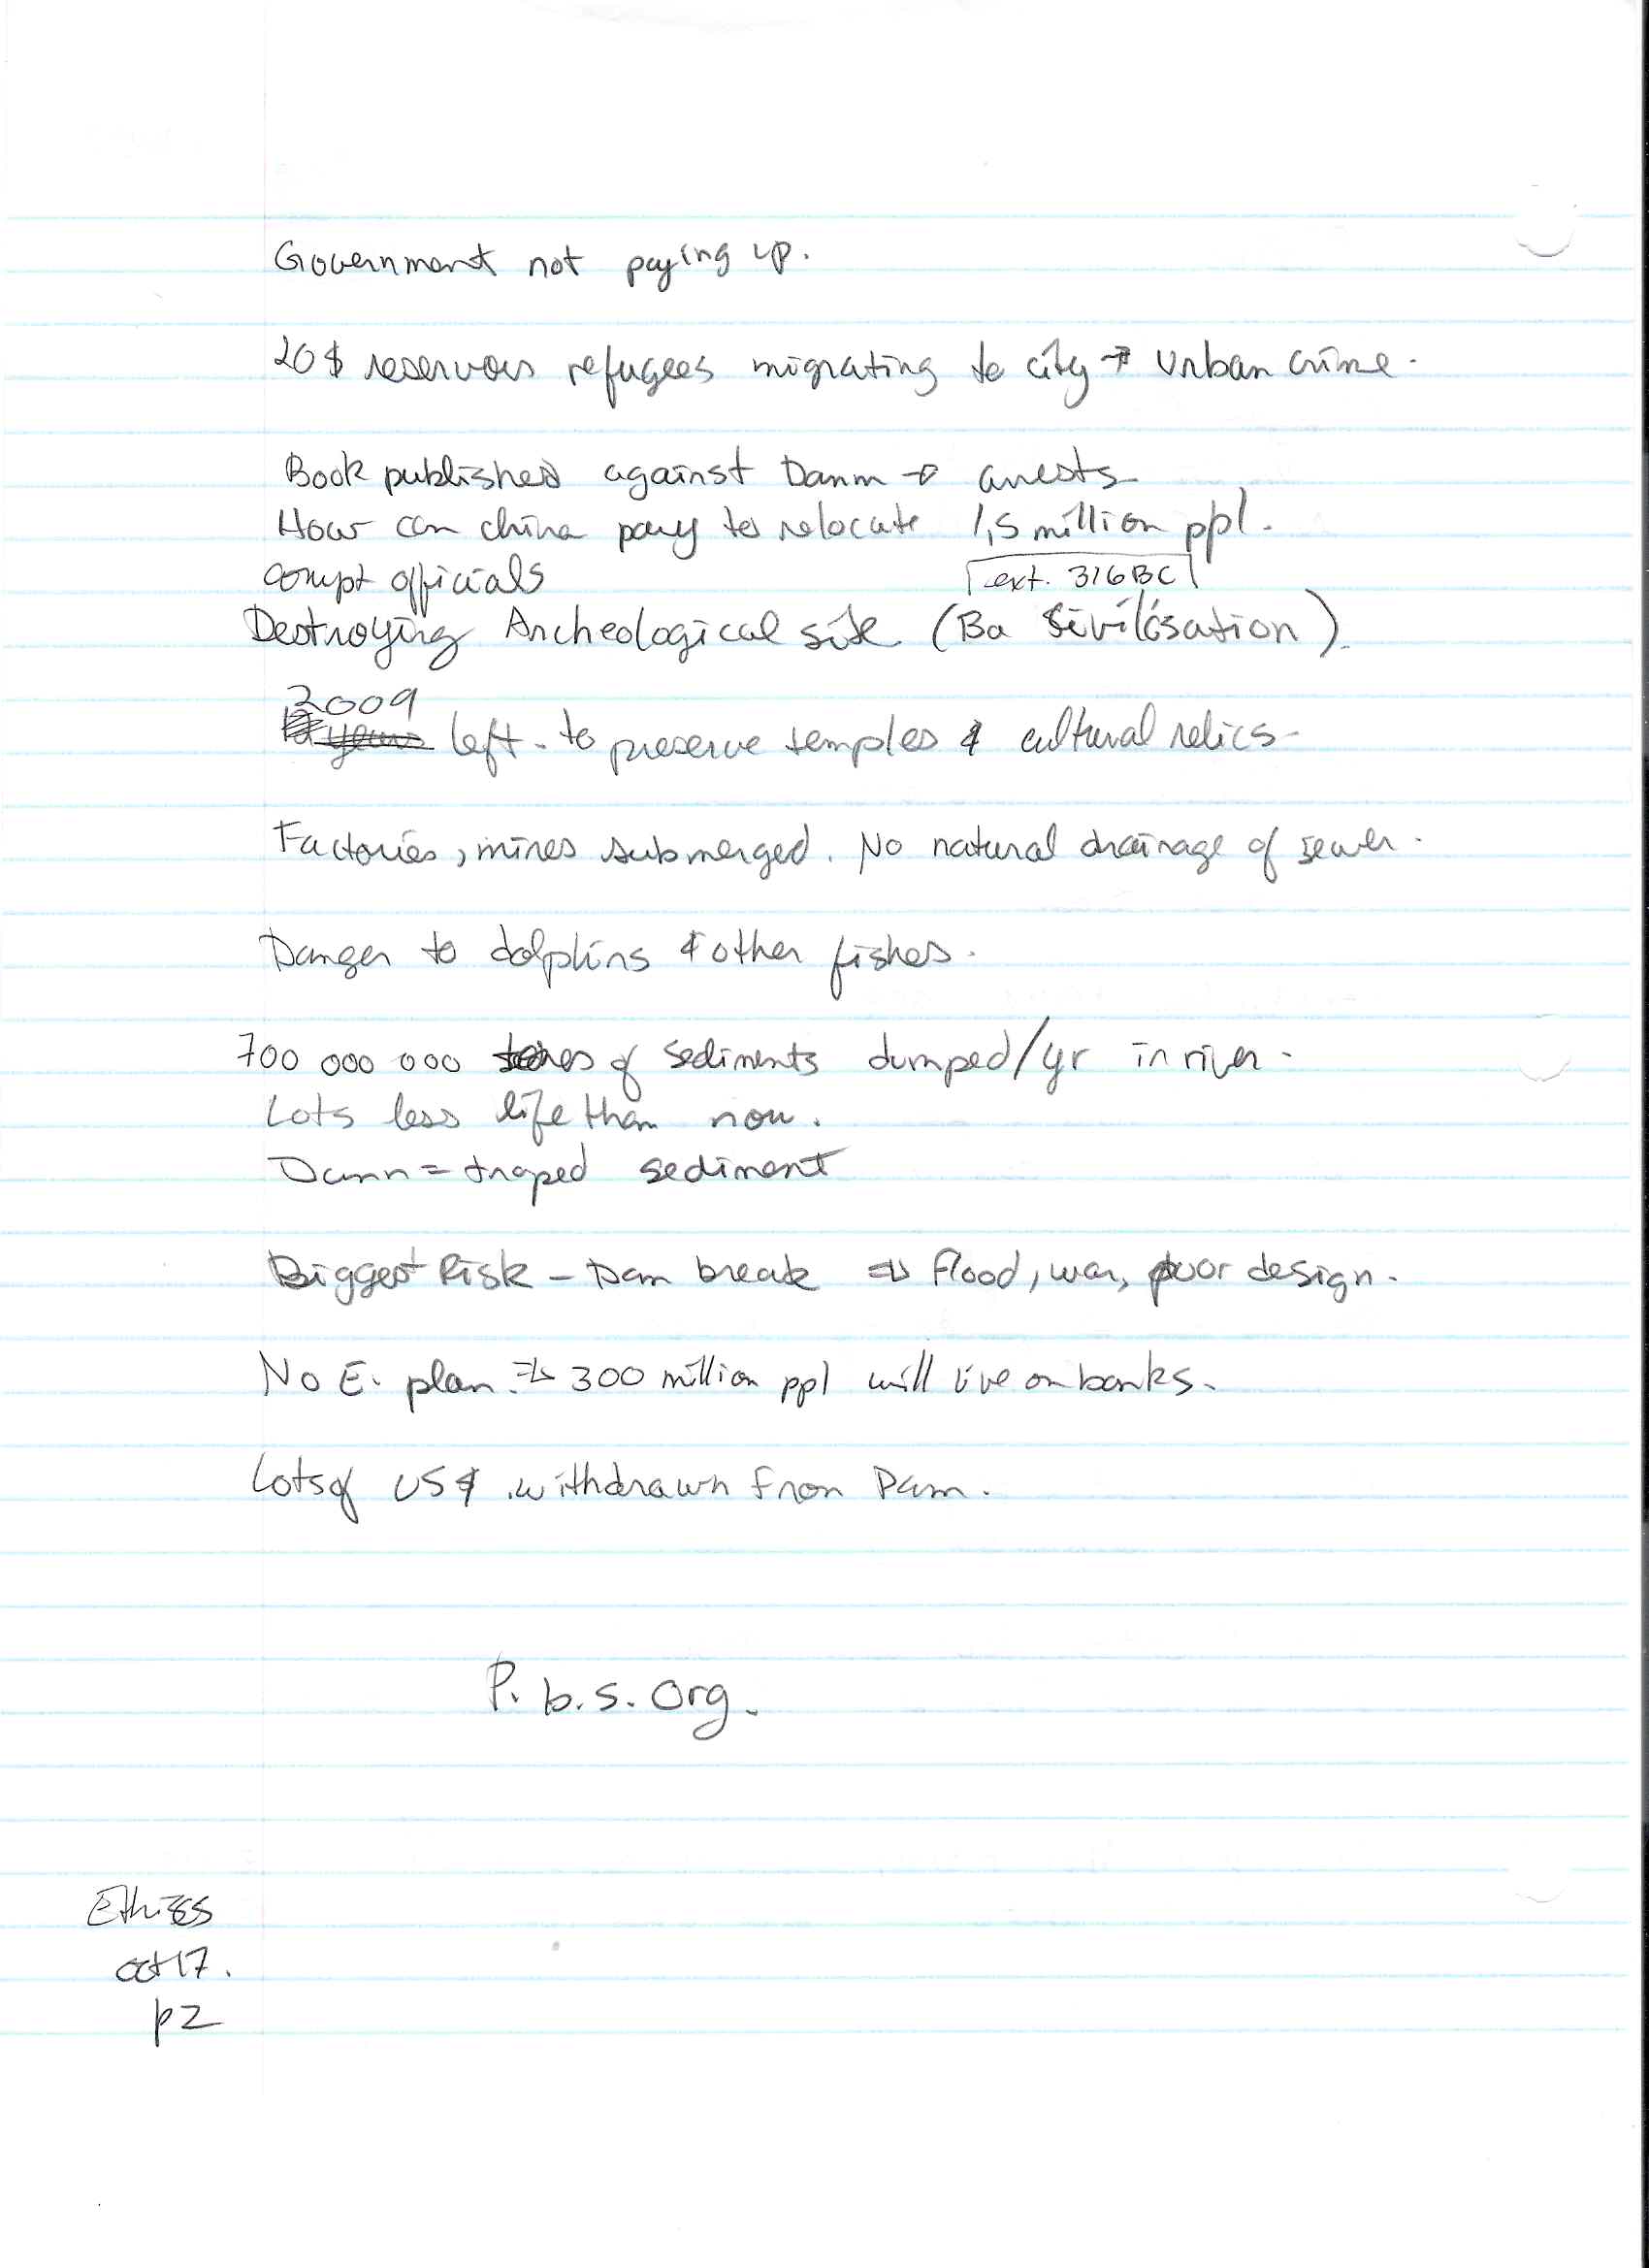 Government not paying up.
20$ reservoirs refugees migrating to city → Urban crime.
Book published against Damm → arrests
How can china pay to relocate 1,5 million ppl.
corrupt officials ext. 316BC
Destroying Archeological site (Ba Sivilisation).
2009
years left to preserve temples & cultural relics
Factories, mines submerged. No natural drainage of sewer.
Danger to dolphins & other fishes.
700 000 000 tones of sediments dumped/yr in river.
Lots less life than now.
Damn = traped sediment
Biggest Risk - Dam break ⇒ flood, war, poor design.
No E. plan. ⇒ 300 million ppl will live on banks.
Lots of US$ withdrawn from Dam.
P.b.s.Org.
Ethics
oct 17.
p2